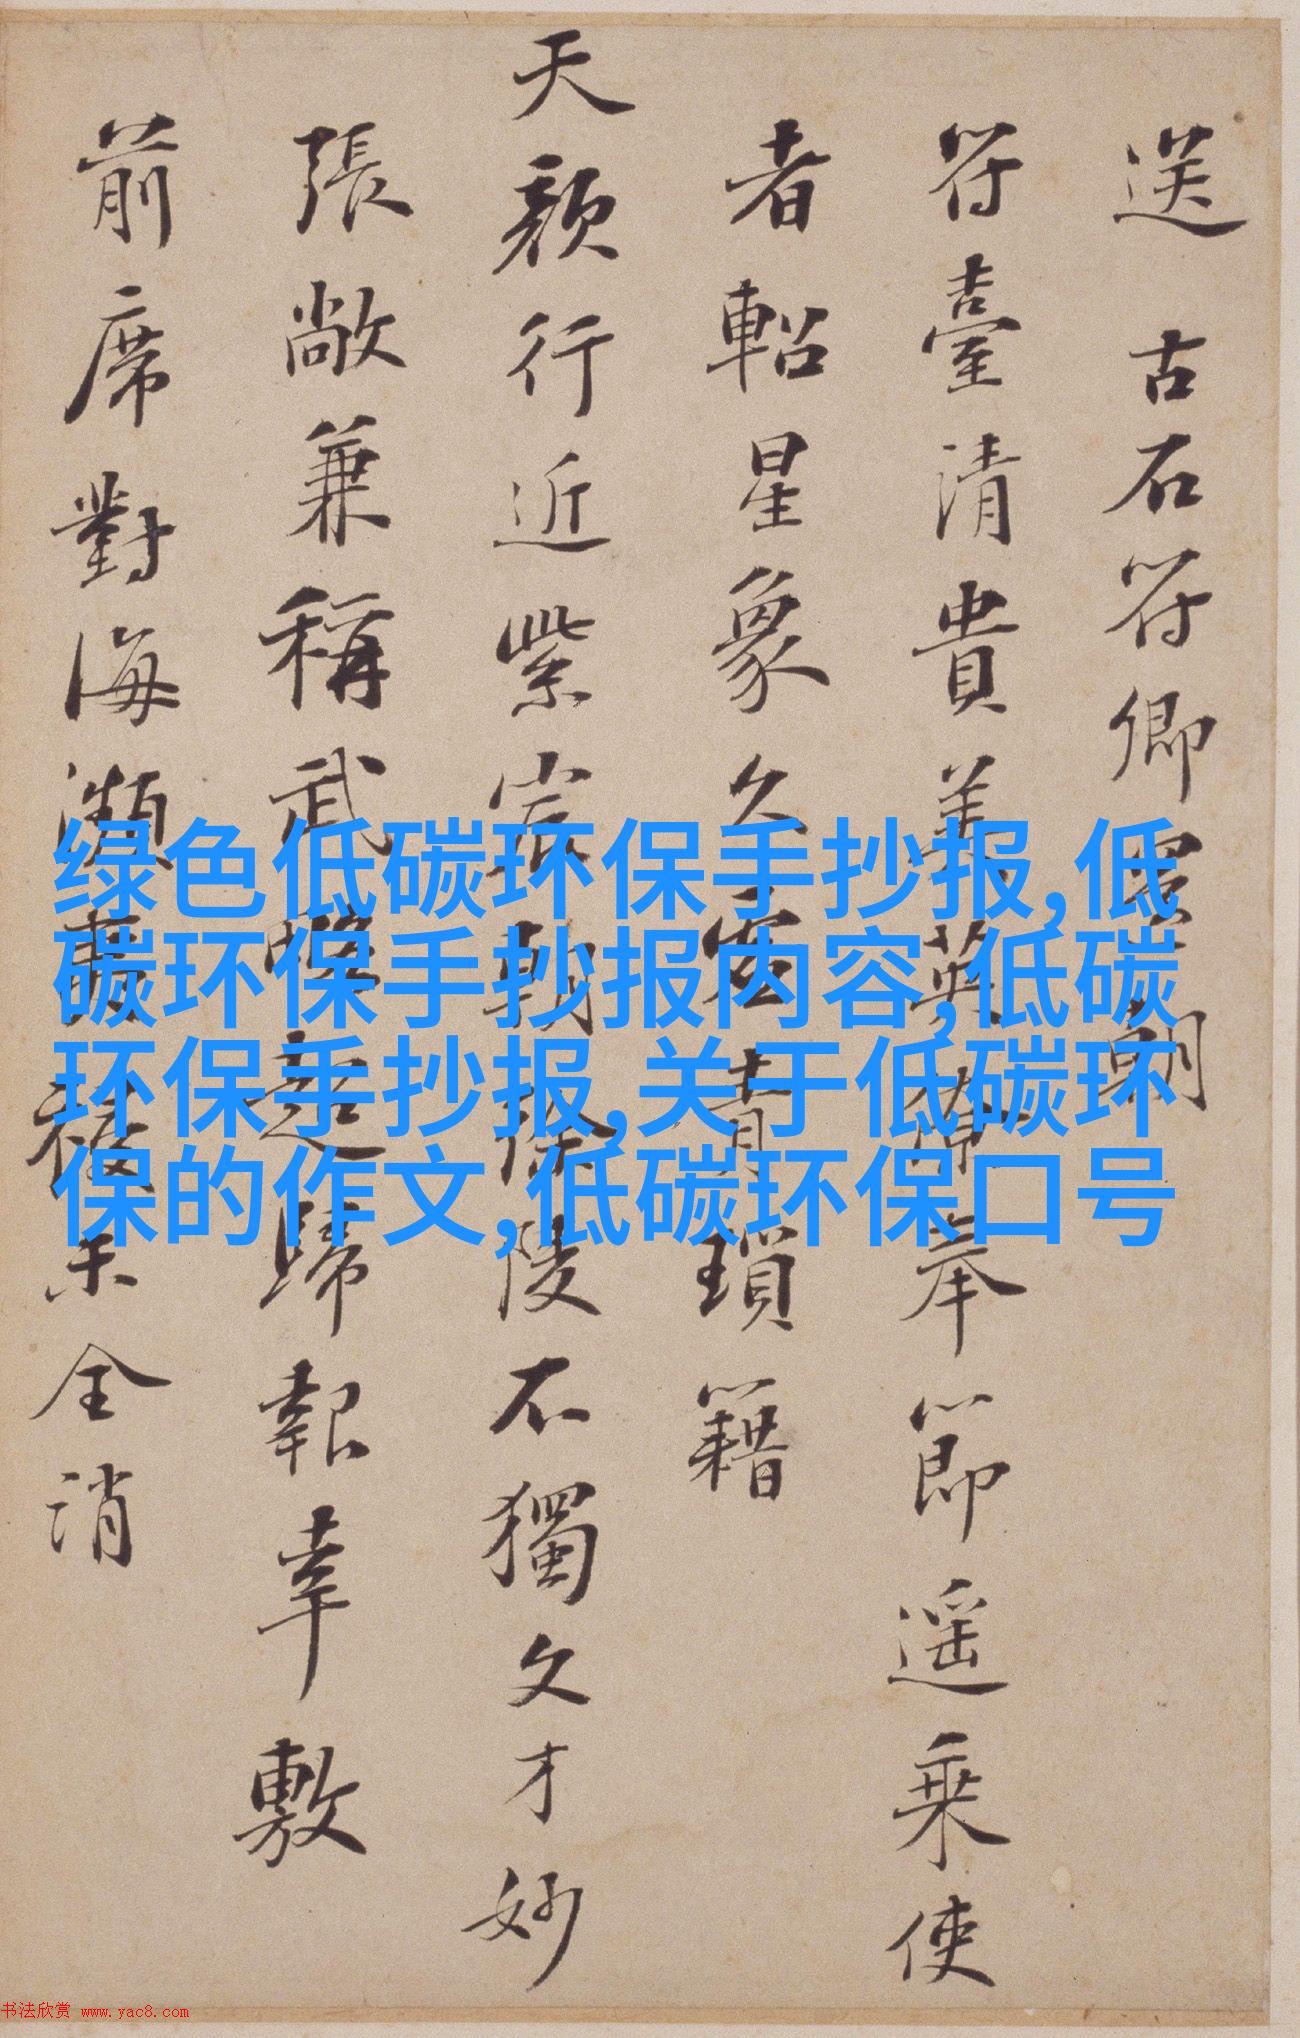 送 古石符卿還朝
符臺清貴美英布奉節遥乗使
者軺星象久 青瑣籍
天顔行近紫宸朝徐陵不獨文才妙
張敞兼稱武 趫歸報幸敷
前席對海瀕 全消
绿色低碳环保手抄报,低
碳环保手抄报内容,低碳
环保手抄报,关于低碳环
保的作文,低碳环保口号
书法欣赏 www.yac8.com